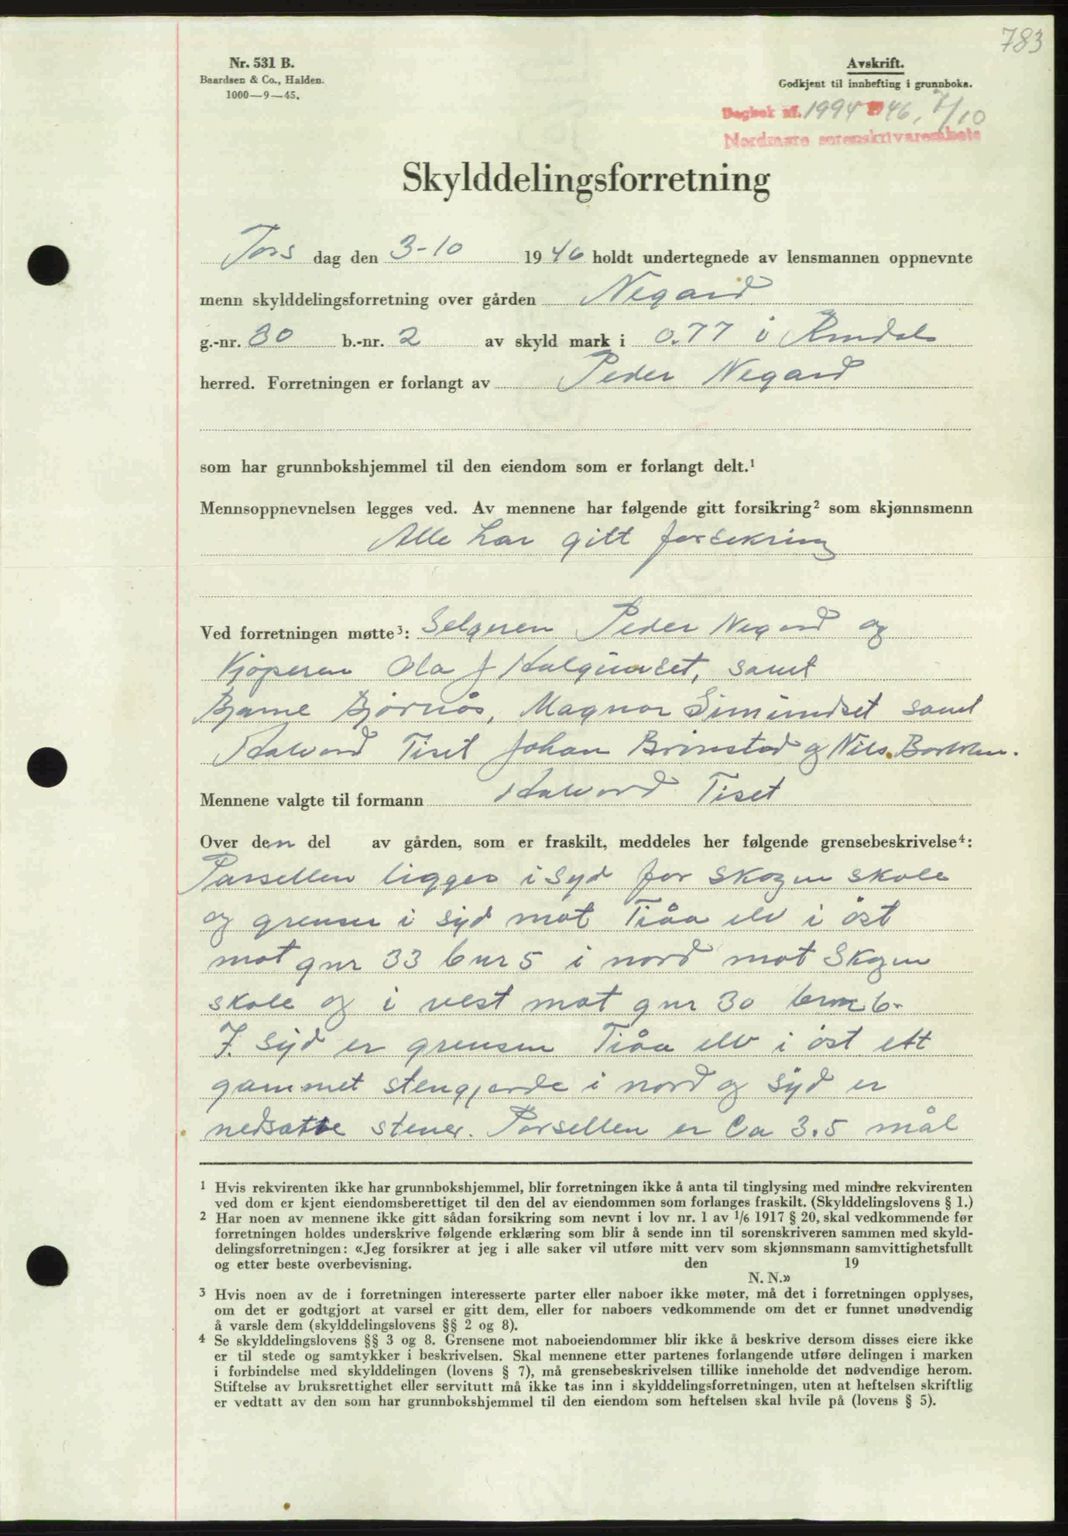 783
Nr. 531 B.
Baardsen & Co., Halden.
1000—9—45.
Avskrift.
Godkjent til innhefting i grunnboka.
Dagbok nr. 1994 1946, 7/10
Nordmøre sorenskrivarembete
Skylddelingsforretning
Tors dag den 3-10 1946 holdt undertegnede av lensmannen oppnevnte
menn skylddelingsforretning over gården Negard
g.-nr. 30 b.-nr. 2 av skyld mark i 0.77 i Rindals
herred. Forretningen er forlangt av Peder Negard
som har grunnbokshjemmel til den eiendom som er forlangt delt.¹
Mennsoppnevnelsen legges ved. Av mennene har følgende gitt forsikring² som skjønnsmenn
Alle har gitt forsikring
Ved forretningen møtte³: Selgeren Peder Negard og
Kjøperen Ola J Halgunset, samt
Bjarne Bjørnås, Magnar Simundset samt
Halvord Tiset Johan Brønstad og Nils
Mennene valgte til formann Halvord Tiset
Over den del av gården, som er fraskilt, meddeles her følgende grensebeskrivelse⁴:
Parsellen ligger i Syd for Skogen skole
og grenser i Syd mot Tiåa elv i øst
mot gnr 33 bnr 5 i nord mot Skogen
skole og i vest mot gnr 30 bnr 6.
I. Syd er grensen Tiåa elv i øst ett
gammet stengjerde i nord og Syd er
nedsatte stener. Parsellen er Ca 3.5 mål
¹ Hvis rekvirenten ikke har grunnbokshjemmel, blir forretningen ikke å anta til tinglysing med mindre rekvirenten
ved dom er kjent eiendomsberettiget til den del av eiendommen som forlanges fraskilt. (Skylddelingslovens § 1.)
² Har noen av mennene ikke gitt sådan forsikring som nevnt i lov nr. 1 av 1/6 1917 § 20, skal vedkommende før
forretningen holdes underskrive følgende erklæring som blir å sende inn til sorenskriveren sammen med skyld-
delingsforretningen: «Jeg forsikrer at jeg i alle saker vil utføre mitt verv som skjønnsmann samvittighetsfullt
og etter beste overbevisning. den 19
N. N.»
³ Hvis noen av de i forretningen interesserte parter eller naboer ikke møter, må det i forretningen opplyses,
om det er godtgjort at varsel er gitt dem, eller for naboers vedkommende om det er funnet unødvendig
å varsle dem (skylddelingslovens §§ 2 og 8).
⁴ Se skylddelingslovens §§ 3 og 8. Grensene mot naboeiendommer blir ikke å beskrive dersom disses eiere ikke
er til stede og samtykker i beskrivelsen. Skal mennene etter partenes forlangende utføre delingen i marken
i forbindelse med skylddelingen (lovens § 7), må grensebeskrivelsen tillike inneholde det nødvendige herom.
Stiftelse av bruksrettighet eller servitutt må ikke tas inn i skylddelingsforretningen, uten at heftelsen skriftlig
er vedtatt av den som har grunnbokshjemmel til den eiendom som heftelsen skal hvile på (lovens § 5).